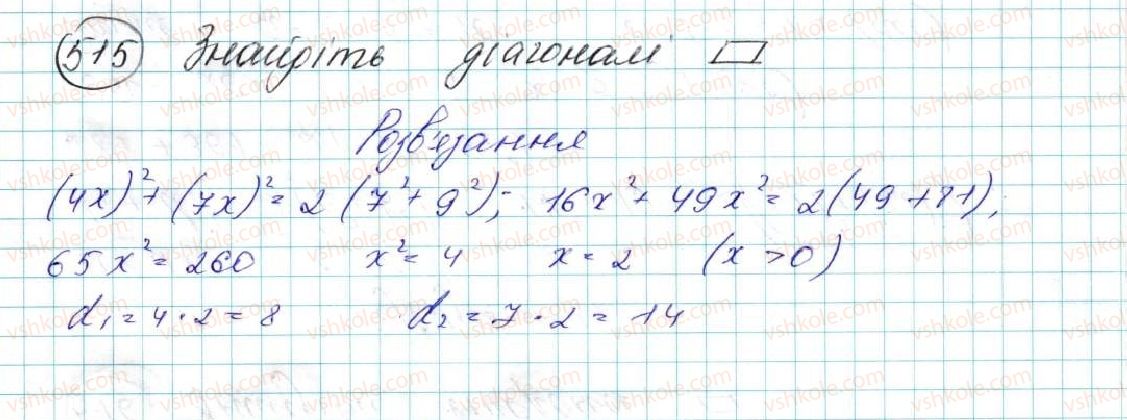 515 Знайдіть діагоналі ▱
Розв'язання
(4x)²+(7x)²=2(7²+9²); 16x²+49x²=2(49+81);
65x²=260 x²=4 x=2 (x>0)
d₁=4·2=8 d₂=7·2=14